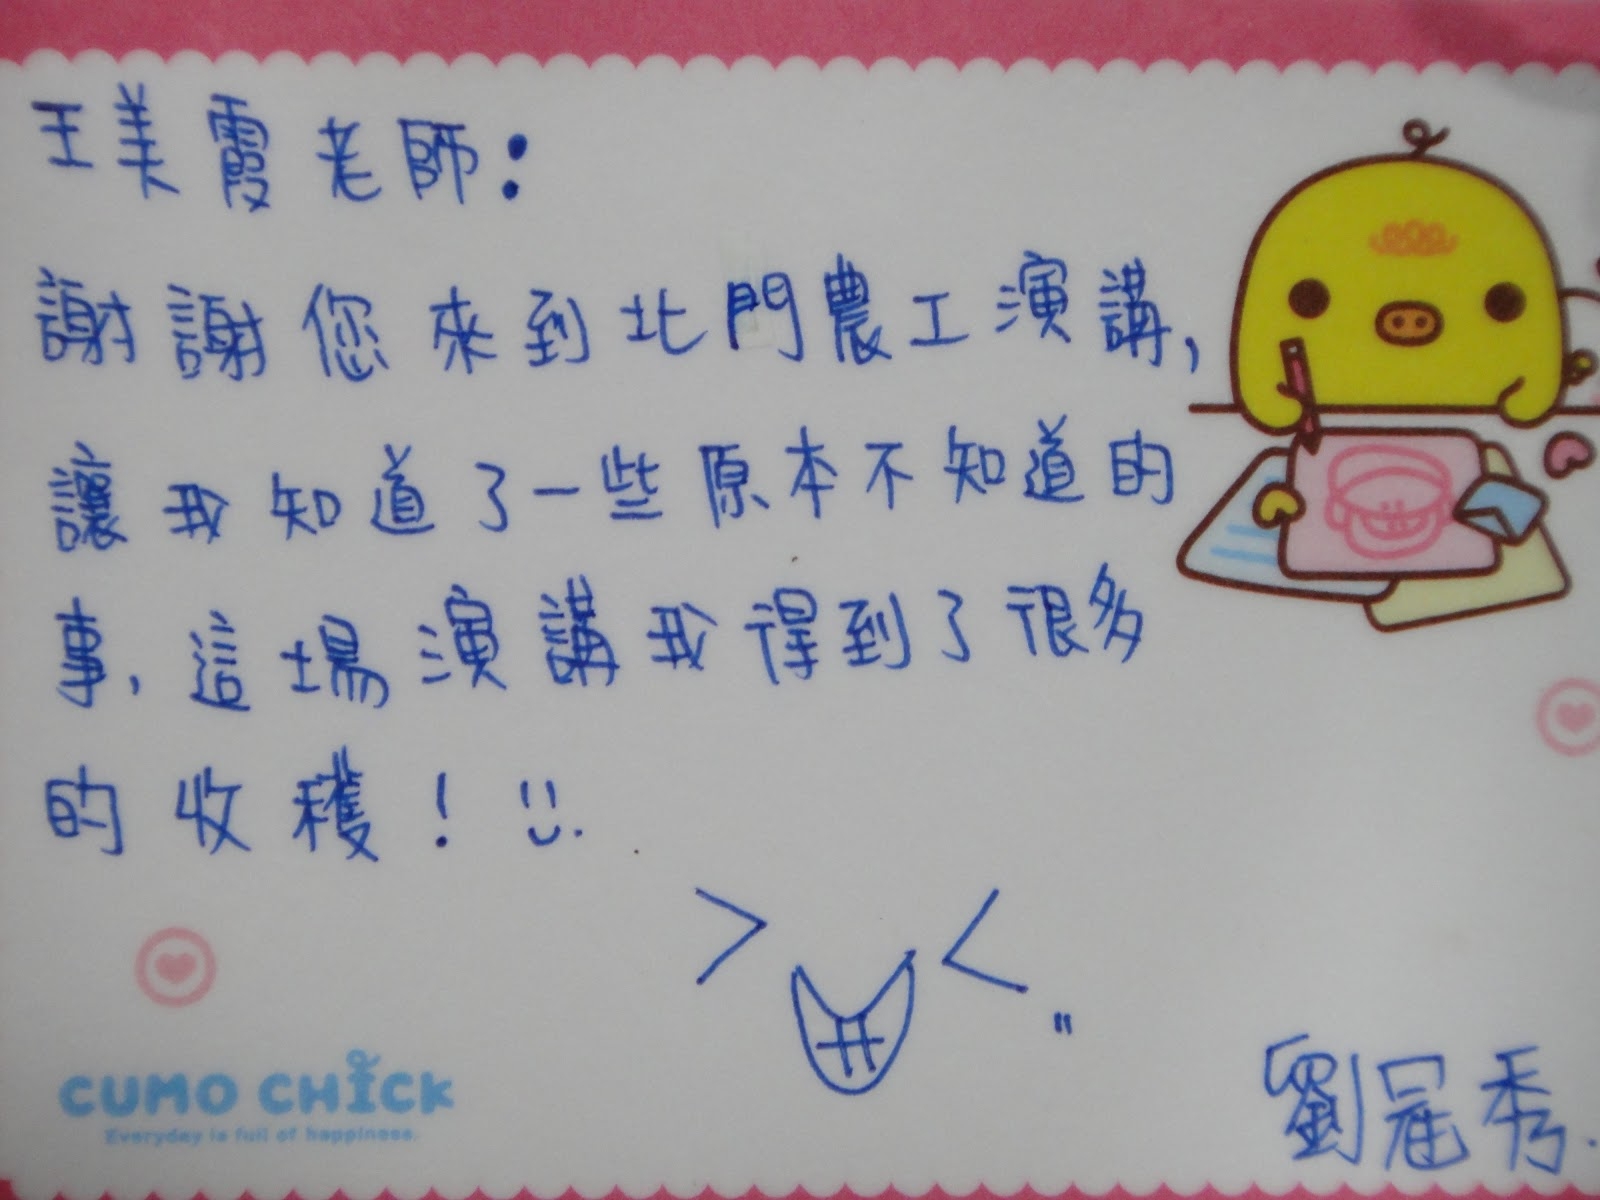 王美霞老師：
謝謝您來到北門農工演講，
讓我知道了一些原本不知道的
事，這場演講我得到了很多
的收穫！
劉冠秀.
CUMO CHICK
Everyday is full of happiness.